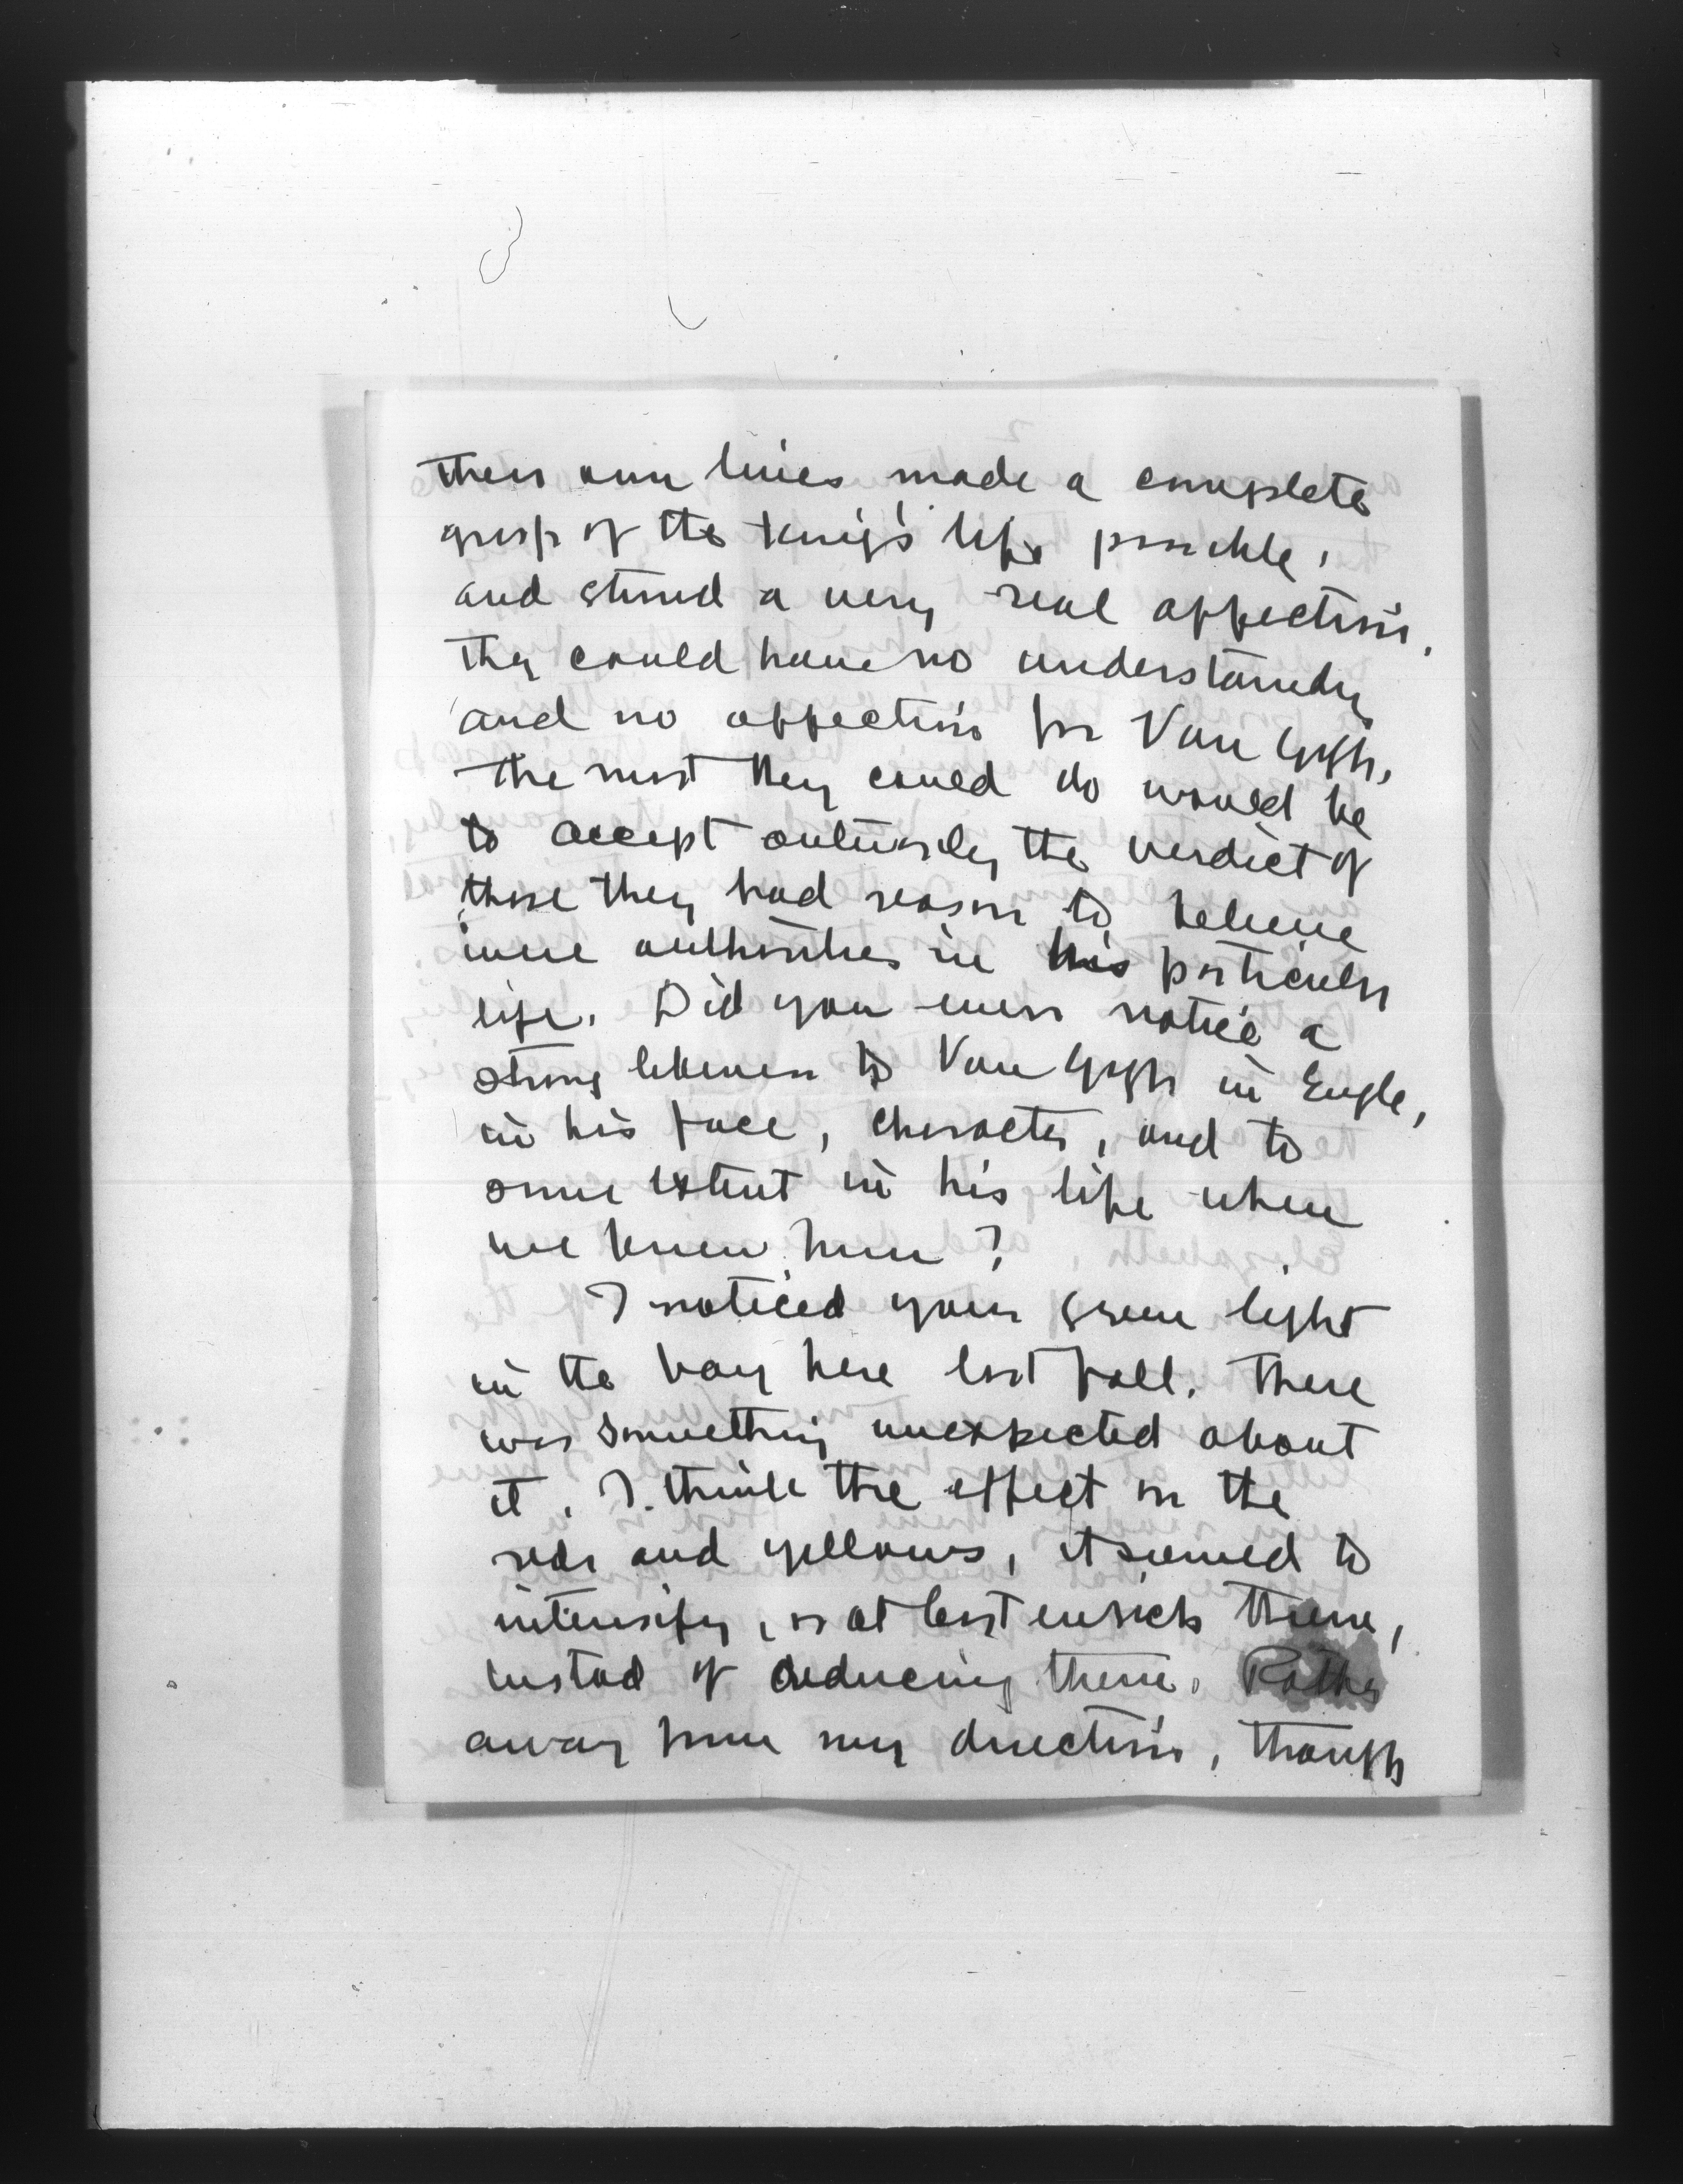 their own lives made a complete
grasp of the King's life possible,
and stirred a very real affection.
They could have no understanding
and no affection for Van Gogh,
the most they could do would be
to accept outwardly the verdict of
those they had reason to believe
were authorities in his particular
life. Did you ever notice a
strong likeness to Van Gogh in Engle,
in his face, character, and to
some extent in his life when
we knew him?
I noticed your green light
in the bay here last fall. There
was something unexpected about
it. I think the effect on the
reds and yellows, it seemed to
intensify, or at least enrich them,
instead of reducing them. Rather
away from my direction, though